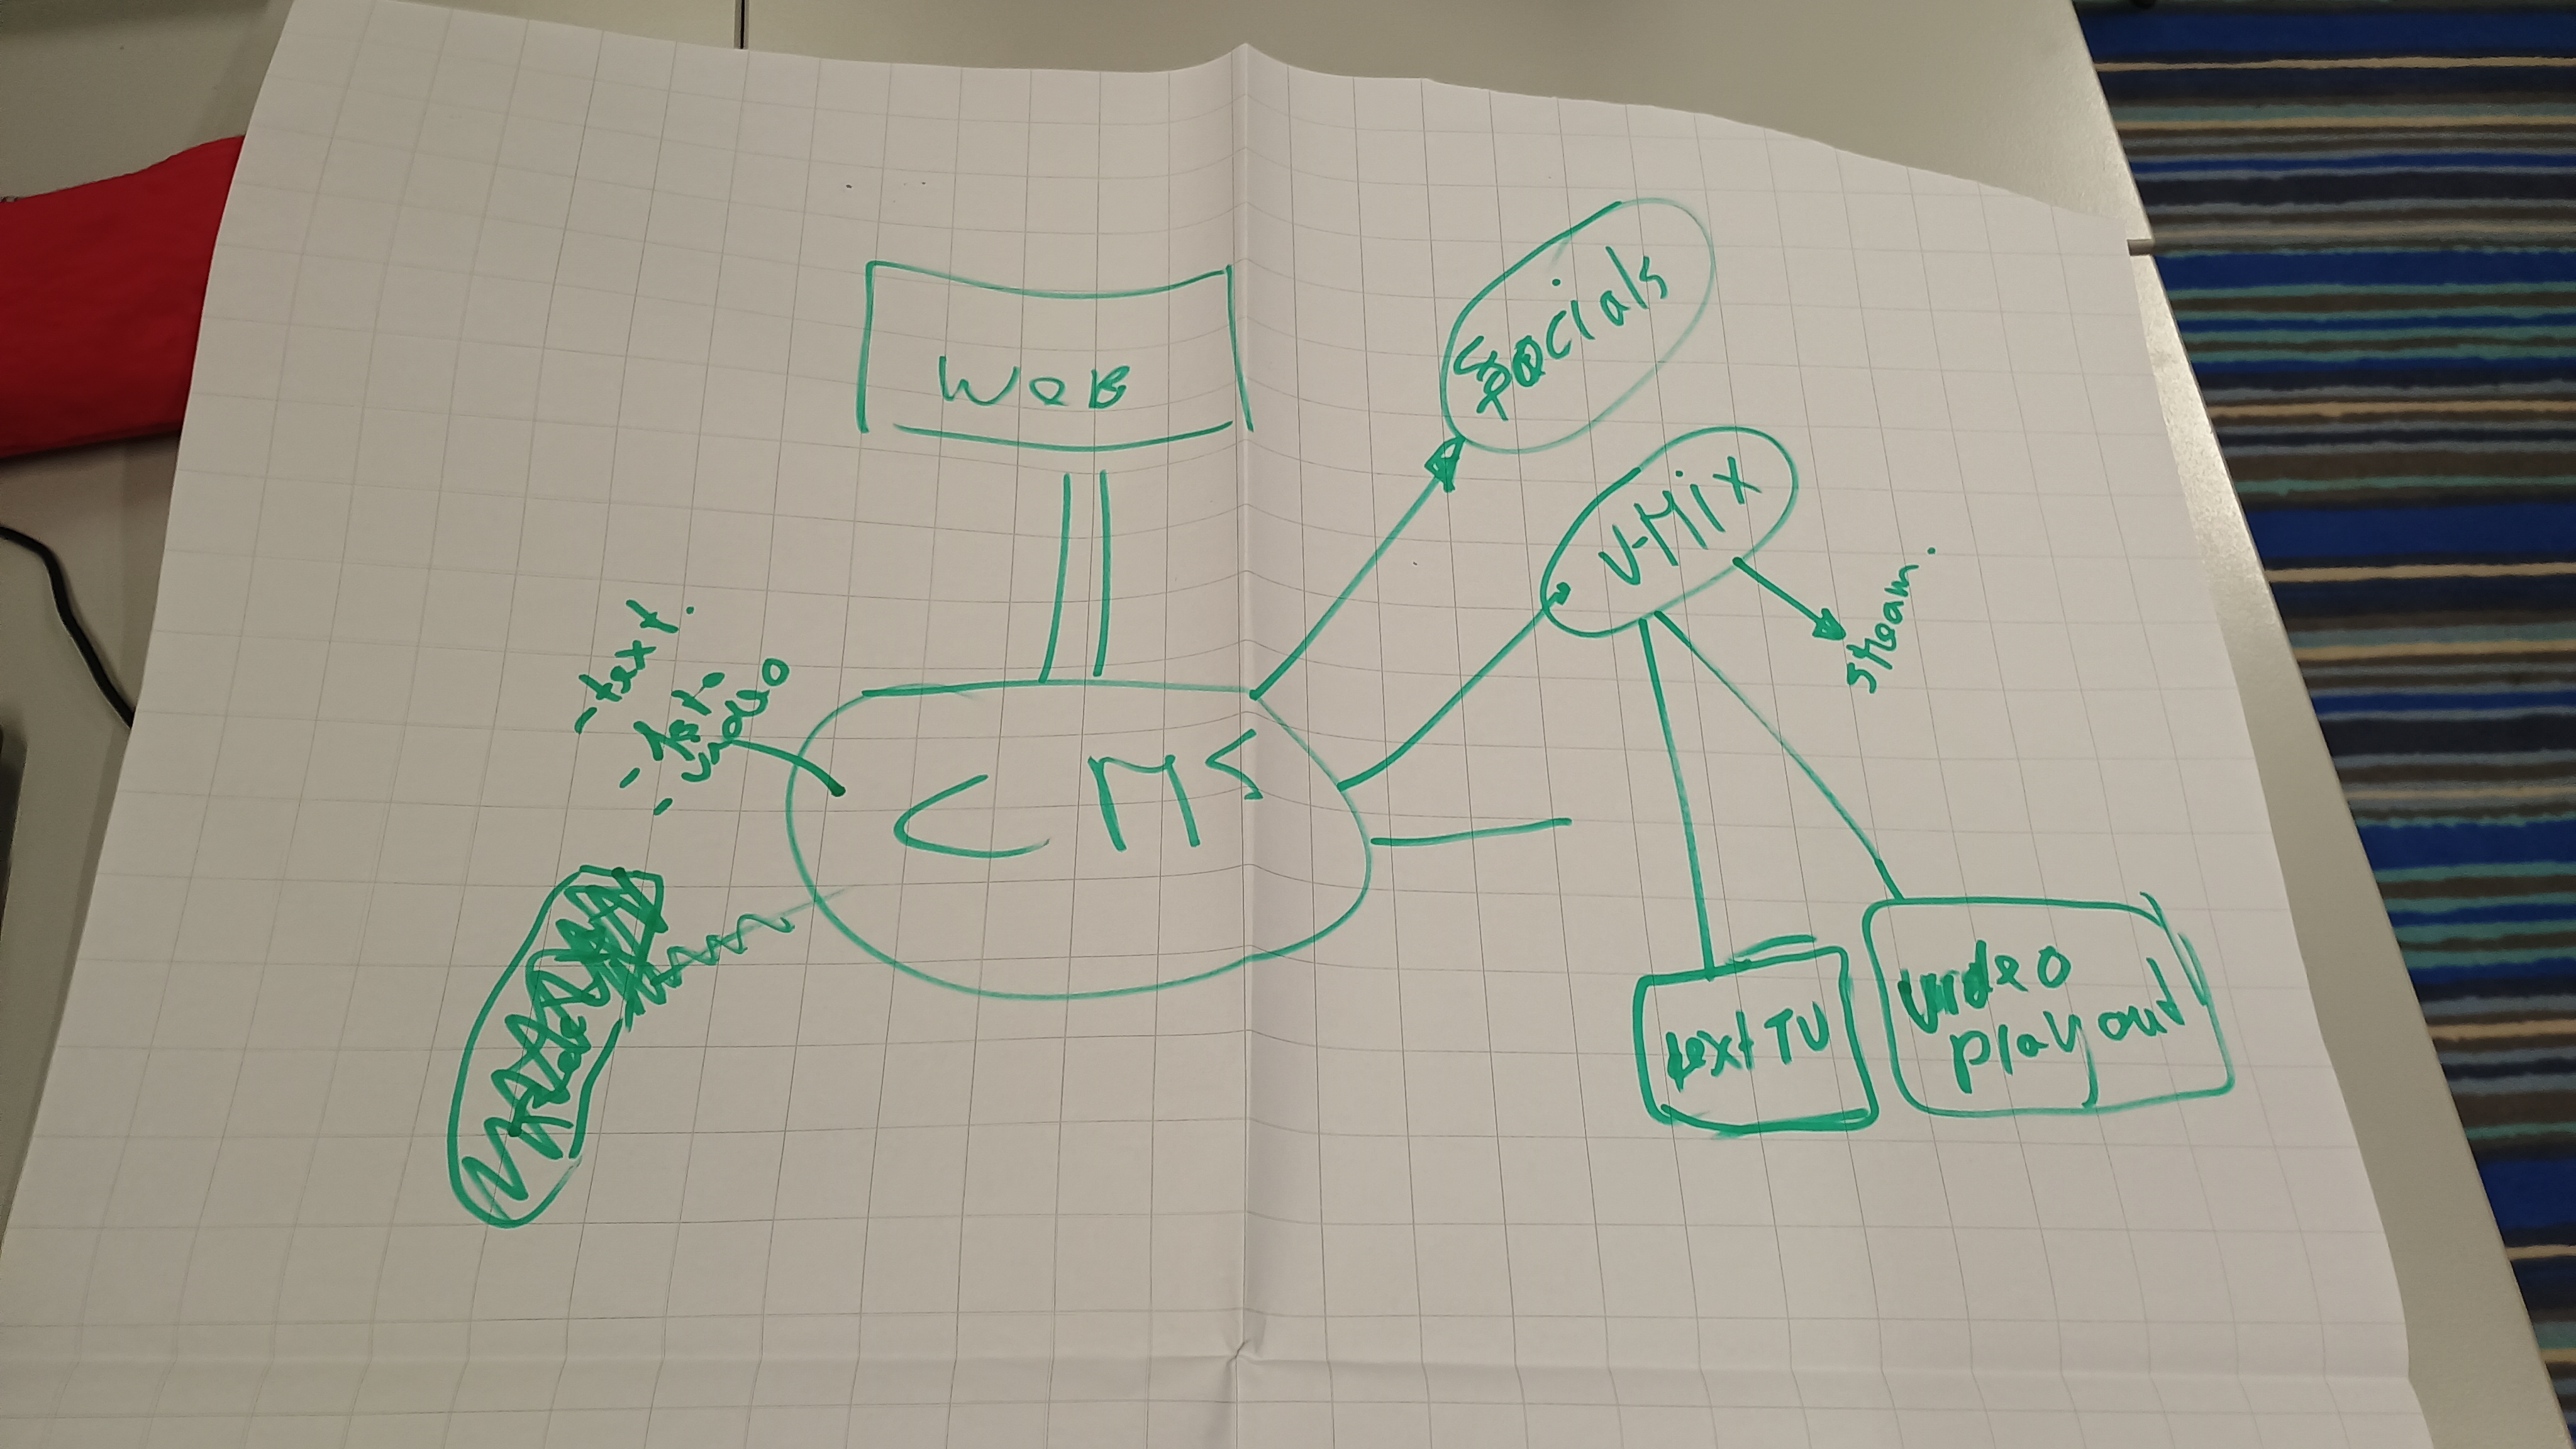 WeB
Socials
V-Mix
stream.
- text.
- video
CMS
text TV
video
play out